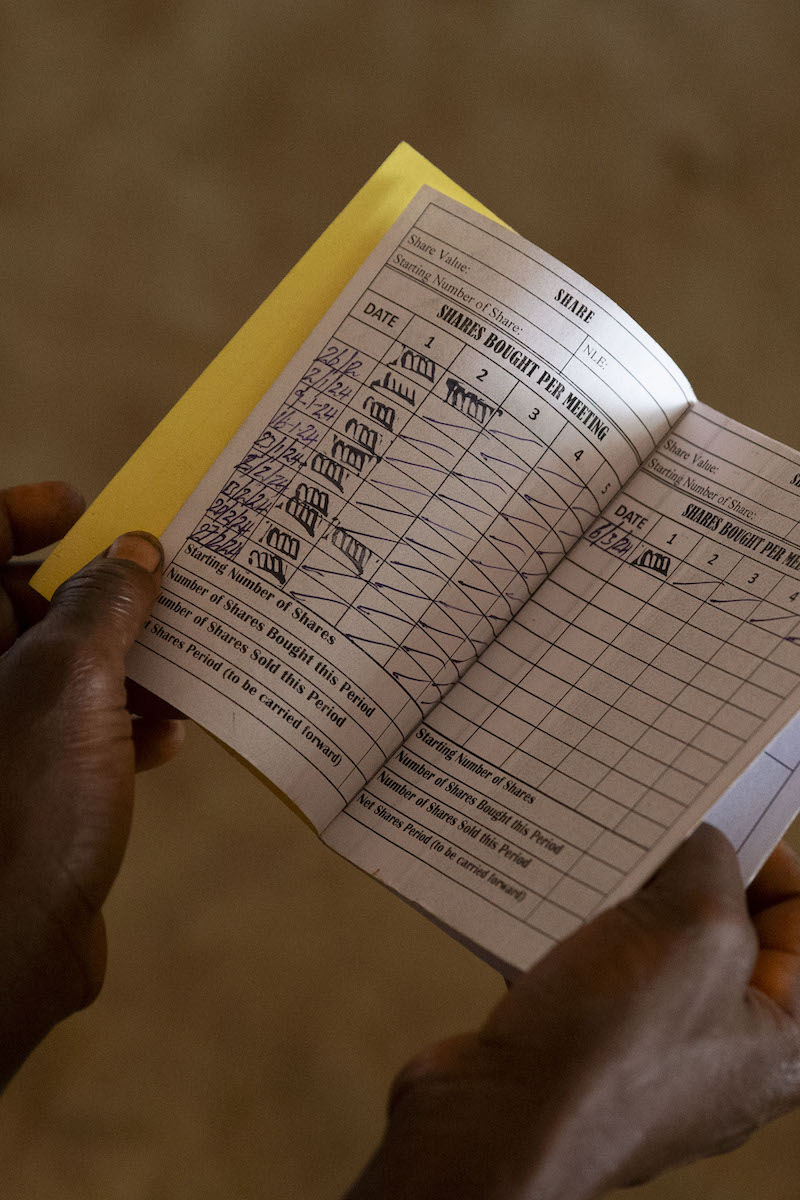 SHARE
Share Value:
Starting Number of Share:
NLE:
SHARES BOUGHT PER MEETING
DATE 1 2 3 4 5
26/12
2/1/24
9-1-24
16-1-24
Starting Number of Shares
Number of Shares Bought this Period
Number of Shares Sold this Period
Shares Period (to be carried forward)
Share Value:
Starting Number of Share:
SHARES BOUGHT PER
DATE 1 2 3 4
6/3/24
Starting Number of Shares
Number of Shares Bought this Period
Number of Shares Sold this Period
Net Shares Period (to be carried forward)